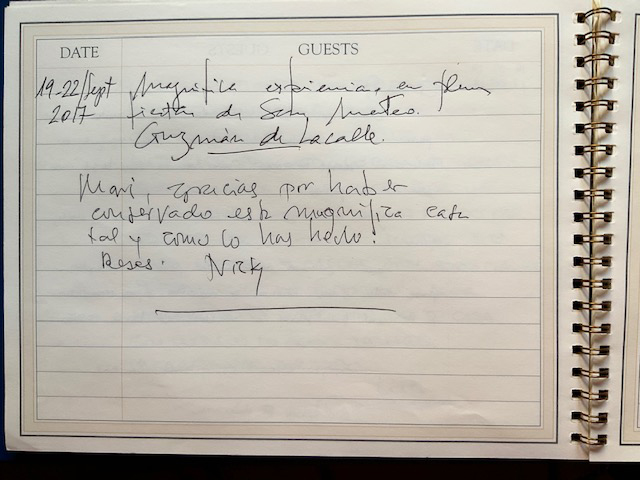 DATE GUESTS
19-22/Sept Magnífica experiencia, en plenas
2017 fiestas de San Mateo.
Guzmán de Lacalle.
Mavi, gracias por haber
conservado esta magnífica casa
tal y como lo has hecho!
Besos. Nicky